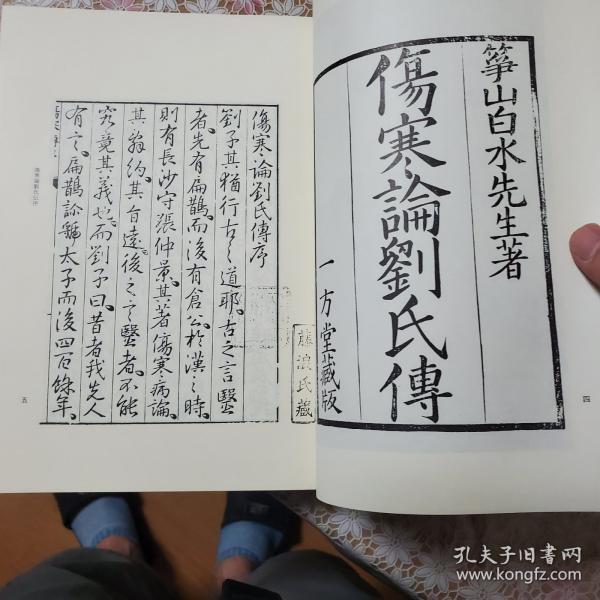 箏山白水先生著
傷寒論劉氏傳
一方堂藏版
四
傷寒論劉氏傳序
劉子其猶行古之道耶古之言醫
者先有扁鵲而後有倉公於漢之時
則有長沙守張仲景其著傷寒病論
其辭約其旨遠後之言醫者不能
究竟其義也而劉子曰昔者我先人
有言扁鵲診虢太子而後四百餘年
藤浪氏藏
傷寒論劉氏傳序
五
孔夫子旧书网
www.kongfz.com